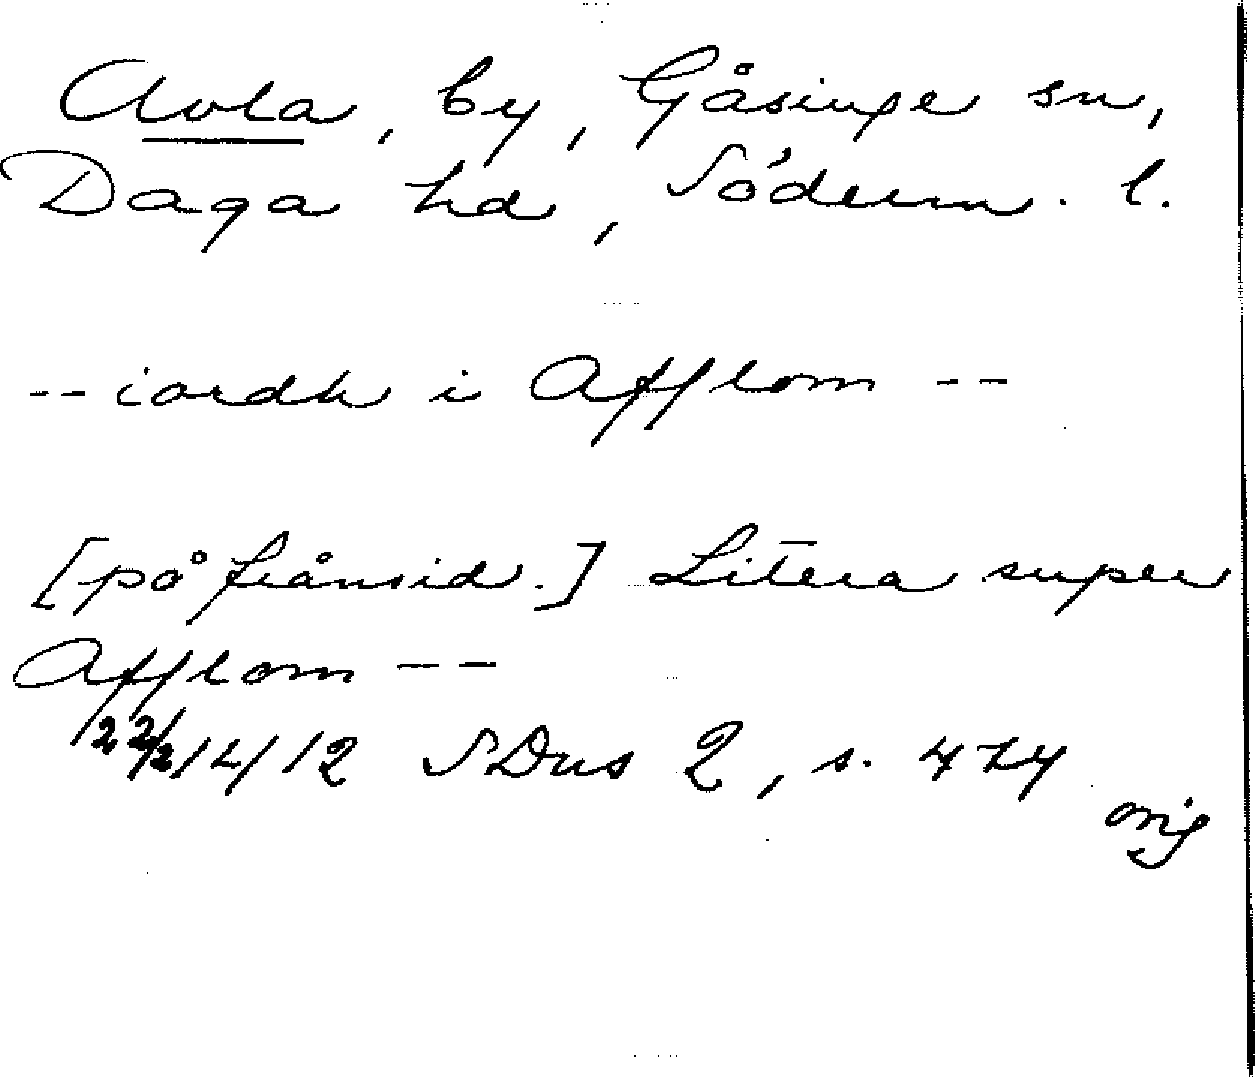 Avla, by, Gåsinge sn,
Daga hd, Söderm. l.
-- iordh i Afflom --
[på frånsid.] Litera super
Afflom --
22/2 1412 SDns 2, s. 474
orig